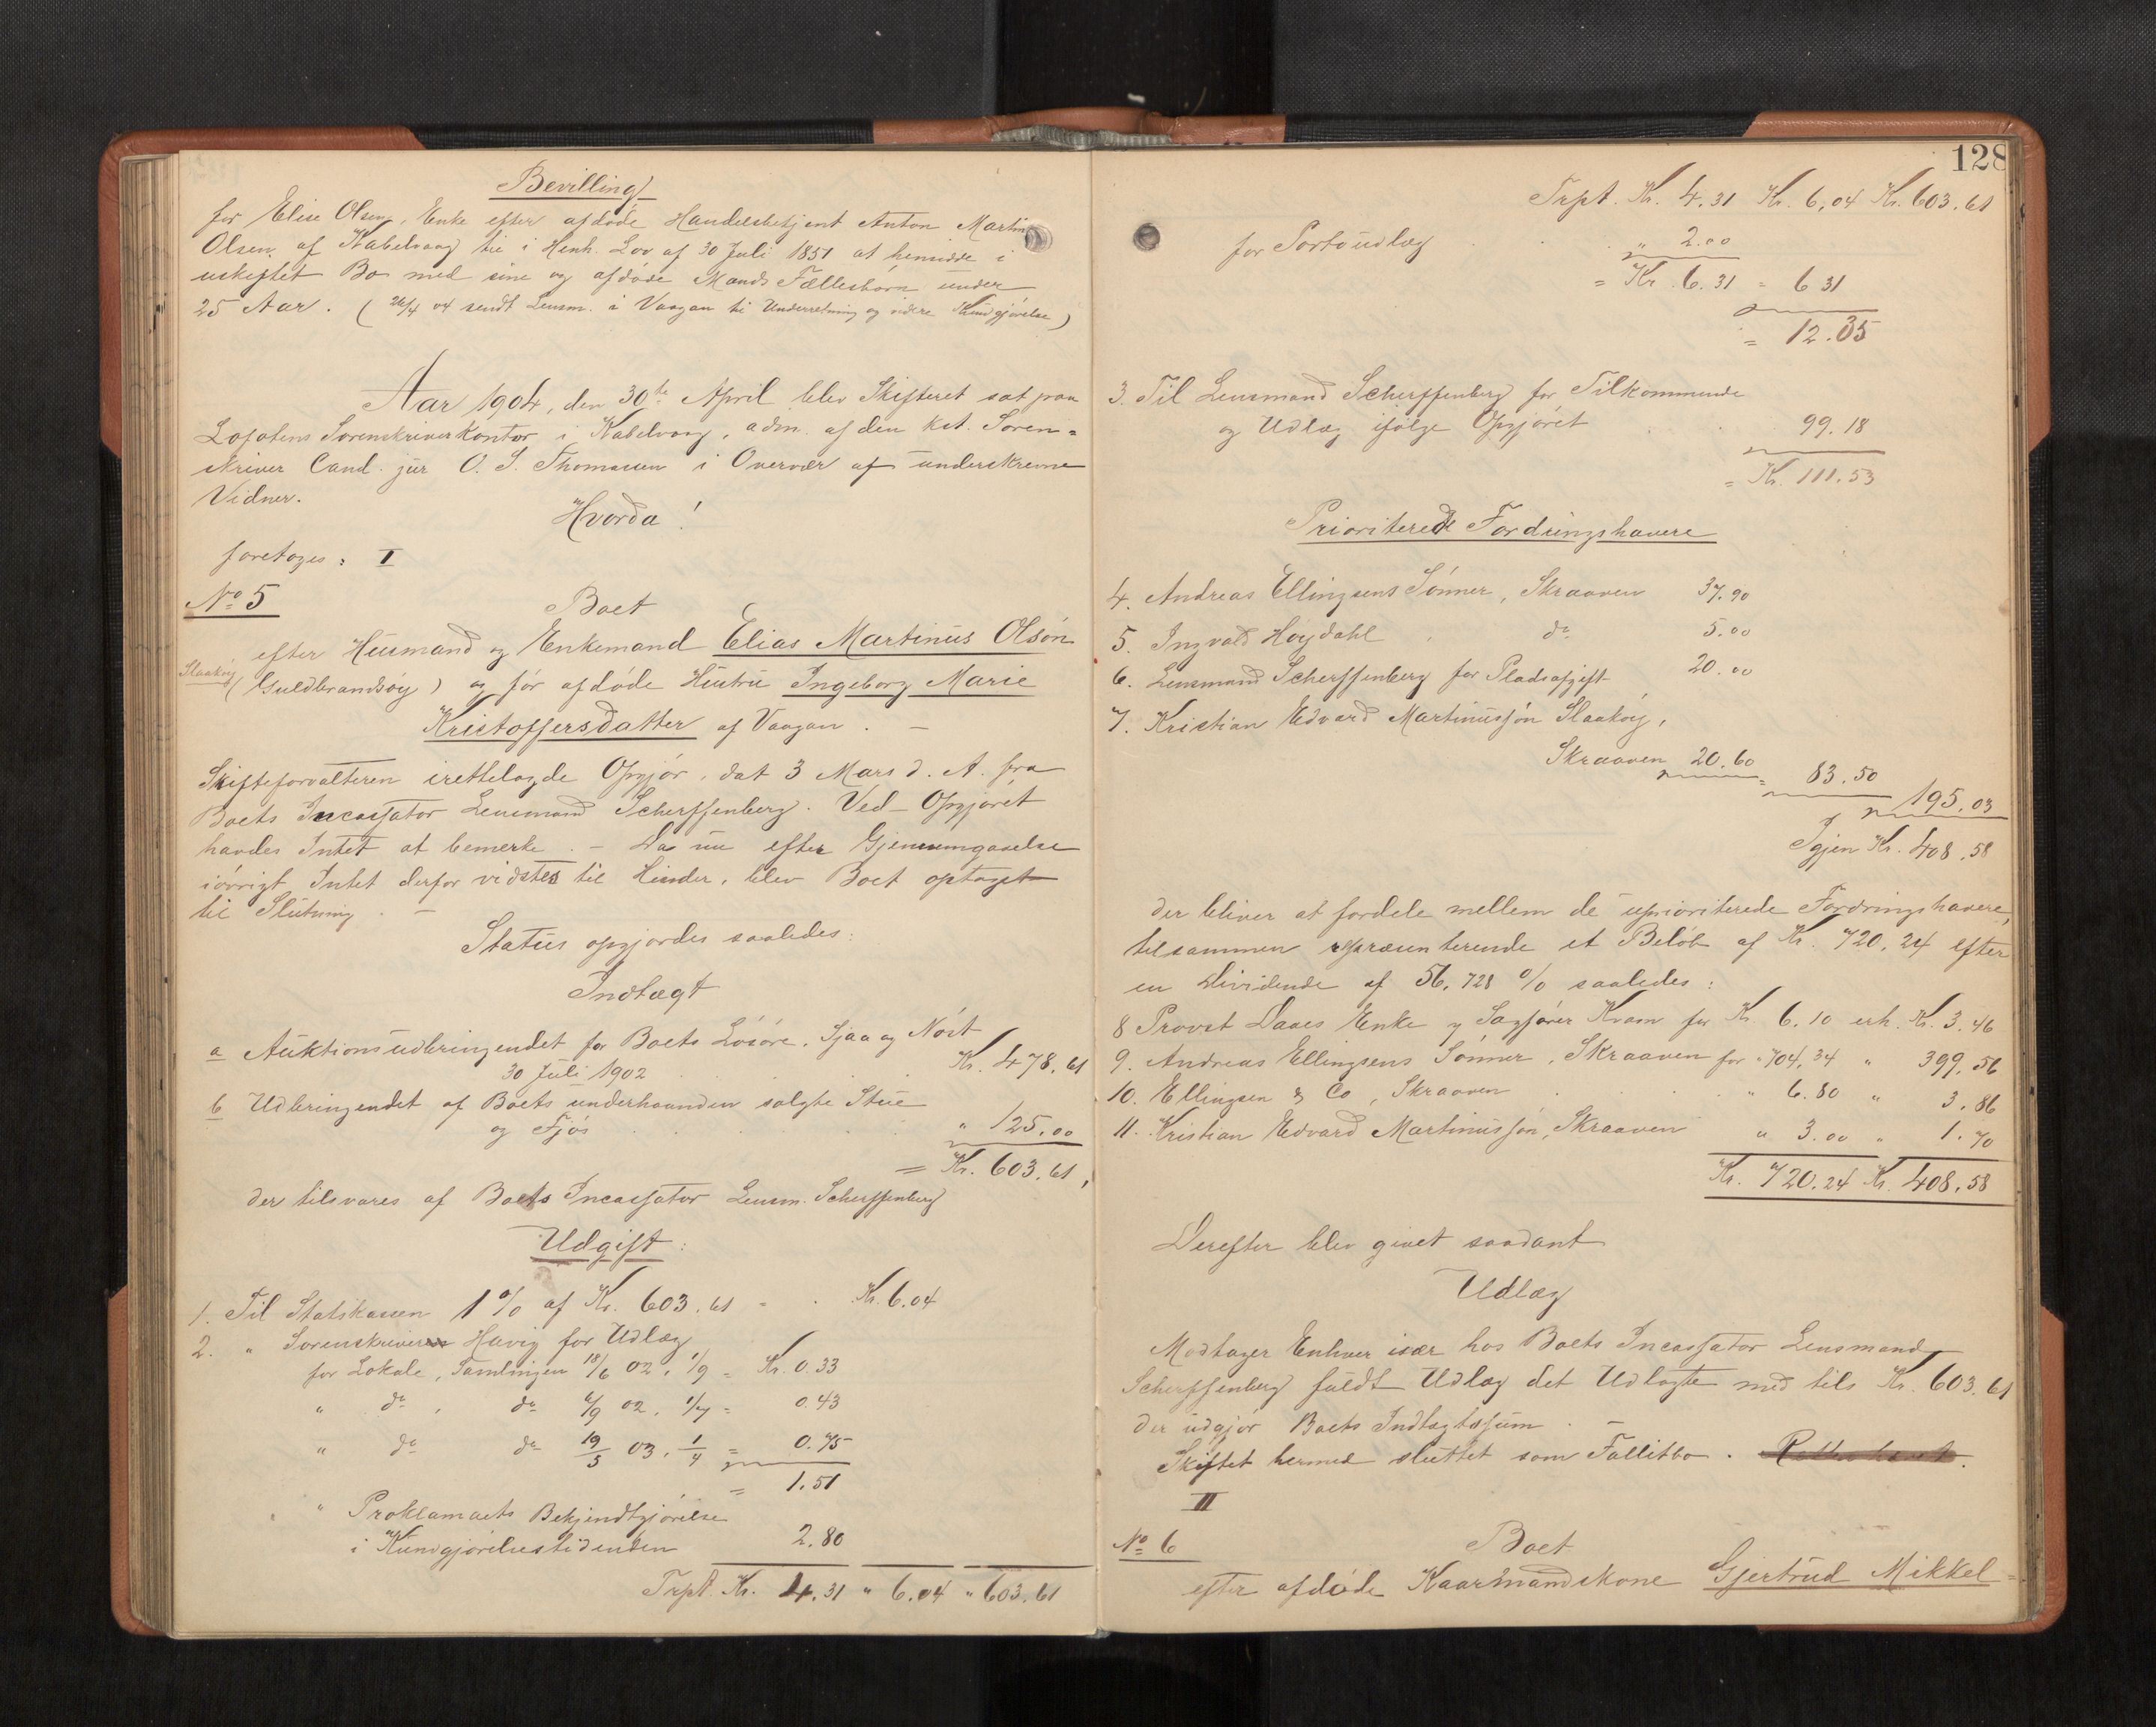 Bevilling
for Elise Olsen, Enke efter afdøde Handelsbetjent Anton Martin
Olsen af Kabelvaag til i Henh. Lov af 30 Juli 1851 at hensidde i
uskiftet Bo med sine og afdøde Mands Fællesbörn under
25 Aar. (26/4 04 sendt Lensm. i Vaagan til Underretning og videre Kundgjörelse)
Aar 1904, den 30te April blev Skifteret sat paa
Lofotens Sorenskriverkontor i Kabelvaag, adm. af den kst. Soren=
skriver Cand. jur O. S. Thomassen i Overvær af underskrevne
Vidner.
Hvorda!
foretoges: I
No 5
Boet
efter Husmand og Enkemand Elias Martinus Olsön
Slaakøy
(Guldbrandsöy) og för afdöde Hustru Ingeborg Marie
Kristoffersdatter af Vaagan. —
Skifteforvalteren irettelagde Opgjör, dat 3 Mars d. A. fra
Boets Incassator Lensmand Scherffenberg. Ved Opgjöret
havdes Intet at bemerke. — Da nu efter Gjennemgaaelse
iövrigt Intet derfor vidstes til Hinder, blev Boet optaget
til Slutning. —
Status opgjordes saaledes:
Indtægt
a Auktionsudbringendet for Boets Lösöre, Sjaa og Nöst
30 Juli 1902 . . . Kr. 478.61
b Udbringendet af Boets underhaanden solgte Stue
og Fjös . . . " 125.00
= Kr. 603.61,
der tilsvares af Boets Incassator Lensm. Scherffenberg
Udgift:
1. Til Statskassen 1% af Kr. 603.61 = . Kr. 6.04
2. " Sorenskriver Havig for Udlæg
for Lokale, Samlingen 18/6 02, 1/9 = Kr. 0.33
" do, do 6/9 02, 1/7 = 0.43
" do do 19/5 03, 1/4 = 0.75
= 1.51
" Proklamaets Bekjendtgjörelse
i Kundgjörelsestidenden 2.80
Trpt. Kr. 4.31 " 6.04 " 603.61
128
Trpt. Kr. 4.31 Kr. 6.04 Kr. 603.61
for Portoudlæg . . " 2.00
= Kr. 6.31 = 6 31
= 12.35
3. Til Lensmand Scherffenberg for Tilkommende
og Udlæg ifölge Opgjöret . . 99.18
= Kr. 111.53
Prioriterede Fordringshavere
4. Andreas Ellingsens Sönner, Skraaven 37.90
5. Ingvald Høydahl, do 5.00
6. Lensmand Scherffenberg for Pladsafgift 20.00
7. Kristian Edvard Martinussön Slaaköy,
Skraaven 20.60
= 83.50
195.03
Igjen Kr. 408.58
der bliver at fordele mellem de uprioriterede Fordringshavere,
tilsammen repræsenterende et Belöb af Kr. 720.24 efter
en Dividende af 56.728 % saaledes:
8 Provst Daaes Enke v Sagförer Kvam for Kr. 6.10 erh. Kr. 3.46
9. Andreas Ellingsens Sönner, Skraaven for " 704.34 " 399.56
10. Ellingsen & Co, Skraaven . . " 6.80 " 3.86
11. Kristian Edvard Martinussön, Skraaven " 3.00 " 1.70
Kr. 720.24 Kr. 408.58
Derefter blev givet saadant
Udlæg
Modtager Enhver især hos Boets Incassator Lensmand
Scherffenberg fuldt Udlæg det Udlagte med tils Kr. 603.61
der udgjör Boets Indtægtssum. —
Skiftet hermed sluttet som Fallitbo.
II
No 6
Boet
efter afdöde Kaarmandskone Gjertrud Mikkel=